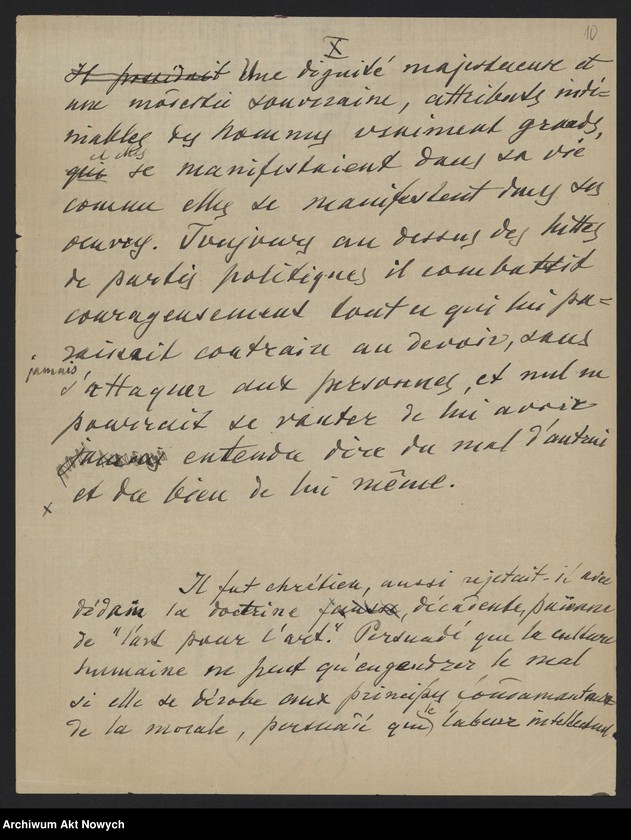 10
X
Il possédait Une dignité majestueuse et
une modestie souveraine, attributs indé-
niables des hommes vraiment grands,
et elles
qui se manifestaient dans sa vie
comme elles se manifestent dans ses
oeuvres. Toujours au dessus des luttes
de partis politiques il combattait
courageusement tout ce qui lui pa-
raissait contraire au devoir, sans
jamais
s'attaquer aux personnes, et nul ne
pourrait se vanter de lui avoir
entendu dire du mal d'autrui
x et du bien de lui même.
Il fut chrétien, aussi rejetait-il avec
dédain la doctrine fausse, décadente, païenne
de "l'art pour l'art." Persuadé que la culture
humaine ne peut qu'engendrer le mal
si elle se dérobe aux principes fondamentaux
le
de la morale, persuadé que labeur intellectuel
Archiwum Akt Nowych